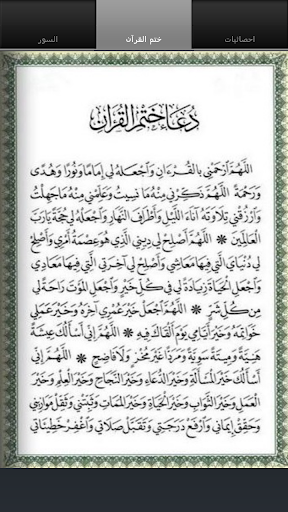 السور ختم القرآن احصائيات
دُعَاءُ خَتْمِ الْقُرْآنِ
اللَّهُمَّ ارْحَمْنِي بِالقُرْءَانِ وَاجْعَلهُ لِي إِمَامًا وَنُورًا وَهُدًى
وَرَحْمَةً اللَّهُمَّ ذَكِّرْنِي مِنْهُ مَا نَسِيتُ وَعَلِّمْنِي مِنْهُ مَا جَهِلْتُ
وَارْزُقْنِي تِلَاوَتَهُ آنَاءَ اللَّيْلِ وَأَطْرَافَ النَّهَارِ وَاجْعَلْهُ لِي حُجَّةً يَارَبَّ
العَالَمِينَ * اللَّهُمَّ أَصْلِحْ لِي دِينِي الَّذِي هُوَ عِصْمَةُ أَمْرِي وَأَصْلِحْ
لِي دُنْيَايَ الَّتِي فِيهَا مَعَاشِي وَأَصْلِحْ لِي آخِرَتِي الَّتِي فِيهَا مَعَادِي
وَاجْعَلِ الحَيَاةَ زِيَادَةً لِي فِي كُلِّ خَيْرٍ وَاجْعَلِ المَوْتَ رَاحَةً لِي
مِنْ كُلِّ شَرٍّ * اللَّهُمَّ اجْعَلْ خَيْرَ عُمْرِي آخِرَهُ وَخَيْرَ عَمَلِي
خَوَاتِمَهُ وَخَيْرَ أَيَّامِي يَوْمَ أَلْقَاكَ فِيهِ * اللَّهُمَّ إِنِّي أَسْأَلُكَ عِيشَةً
هَنِيَّةً وَمِيتَةً سَوِيَّةً وَمَرَدًّا غَيْرَ مُخْزٍ وَلَا فَاضِحٍ * اللَّهُمَّ إِنِّي
أَسْأَلُكَ خَيْرَ المَسْأَلَةِ وَخَيْرَ الدُّعَاءِ وَخَيْرَ النَّجَاحِ وَخَيْرَ العِلْمِ وَخَيْرَ
العَمَلِ وَخَيْرَ الثَّوَابِ وَخَيْرَ الحَيَاةِ وَخَيْرَ المَمَاتِ وَثَبِّتْنِي وَثَقِّلْ مَوَازِينِي
وَحَقِّقْ إِيمَانِي وَارْفَعْ دَرَجَتِي وَتَقَبَّلْ صَلَاتِي وَاغْفِرْ خَطِيئَاتِي